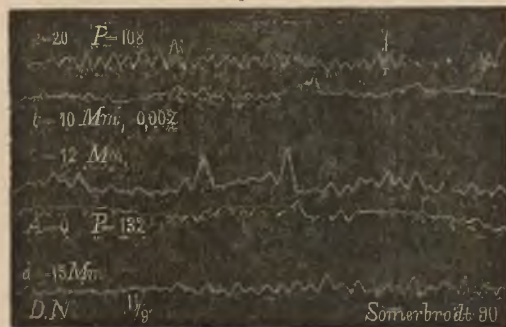 20 P=108
t=10 Mm, 0,002
12 Mm,
A=0 P=132
d=15 Mm
D.N 11/9 Somerbrodt 90